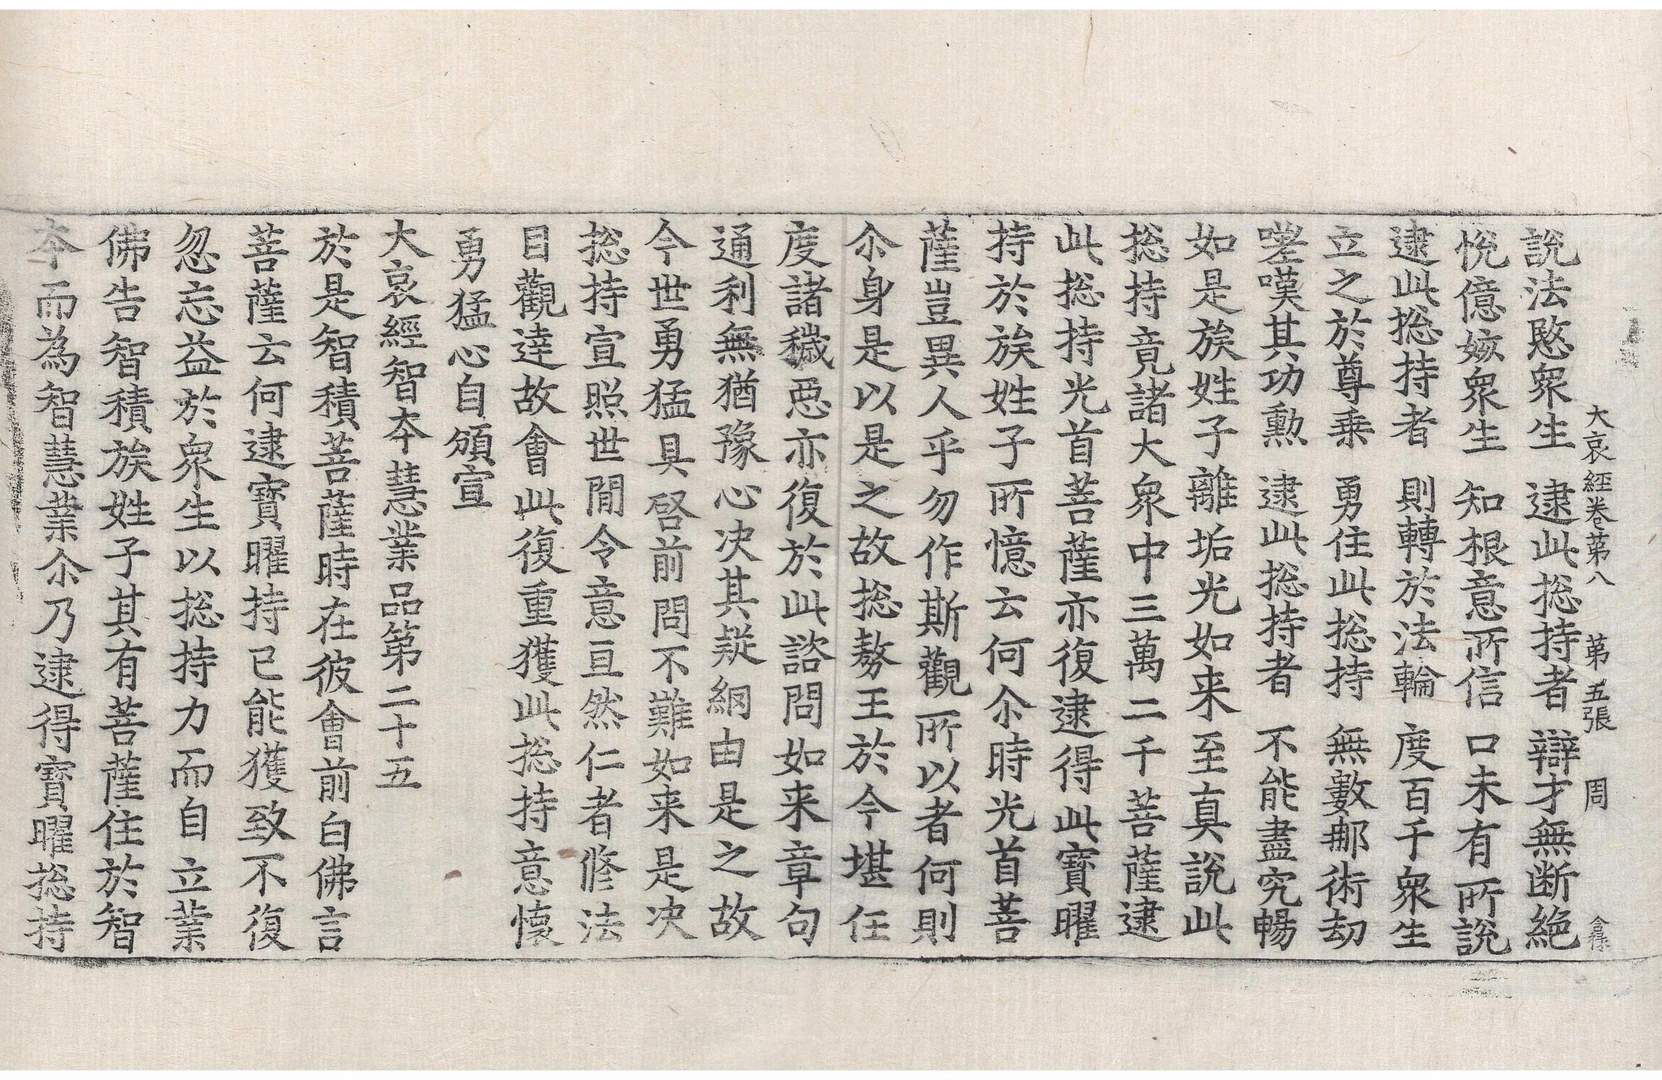 大哀經卷第八 第五張 周
說法愍衆生 逮此㧾持者 辯才無断絶
悅億姟衆生 知根意所信 口未有所說
逮此㧾持者 則轉於法輪 度百千衆生
立之於尊乗 勇住此㧾持 無數那術劫
嗟嘆其功勲 逮此㧾持者 不能盡究暢
如是族姓子離垢光如来至真說此
㧾持竟諸大衆中三萬二千菩薩逮
此㧾持光首菩薩亦復逮得此寳曜
持於族姓子所憶云何尒時光首菩
薩豈異人乎勿作斯觀所以者何則
尒身是以是之故㧾勢王於今堪任
度諸穢惡亦復於此諮問如来章句
通利無猶豫心决其疑網由是之故
今世勇猛具啓前問不難如来是决
㧾持宣照世間令意亘然仁者脩法
目觀逹故會此復重獲此㧾持意懷
勇猛心自頒宣
大哀經智夲慧業品第二十五
於是智積菩薩時在彼會前白佛言
菩薩云何逮寳曜持已能獲致不復
忽忘益於衆生以㧾持力而自立業
佛告智積族姓子其有菩薩住於智
夲而為智慧業尒乃逮得寳曜㧾持